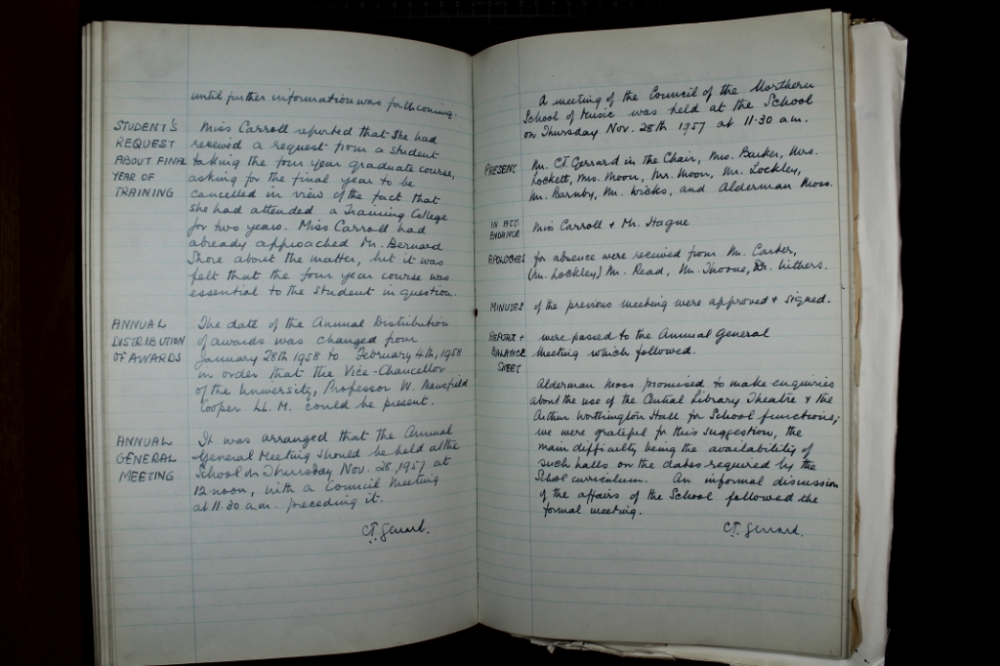 until further information was forthcoming.
STUDENT'S REQUEST ABOUT FINAL YEAR OF TRAINING
Miss Carroll reported that she had
received a request from a student
taking the four year graduate course,
asking for the final year to be
cancelled in view of the fact that
she had attended a Training College
for two years. Miss Carroll had
already approached Mr. Bernard
Shore about the matter, but it was
felt that the four year course was
essential to the student in question.
ANNUAL DISTRIBUTION OF AWARDS
The date of the Annual Distribution
of awards was changed from
January 28th 1958 to February 4th, 1958
in order that the Vice-Chancellor
of the University, Professor W. Mansfield
Cooper LL.M. could be present.
ANNUAL GENERAL MEETING
It was arranged that the Annual
General Meeting should be held at the
School on Thursday Nov. 28, 1957 at
12 noon, with a Council Meeting
at 11.30 a.m. preceding it.
C.T. Gerrard.
A meeting of the Council of the Northern
School of Music was held at the School
on Thursday Nov. 28th 1957 at 11.30 a.m.
PRESENT
Mr. CT Gerrard in the Chair, Mrs. Barker, Mrs.
Lockett, Mrs. Moon, Mr. Moon, Mr. Lockley,
Mr. Barnby, Mr. Wicks, and Alderman Moss.
IN ATTENDANCE
Miss Carroll + Mr. Hague
APOLOGIES
for absence were received from Mr. Carter,
(Mr. Lockley) Mr. Read, Mr. Thorne, Dr. Withers.
MINUTES of the previous meeting were approved + signed.
REPORT + BALANCE SHEET
were passed to the Annual General
Meeting which followed.
Alderman Moss promised to make enquiries
about the use of the Central Library Theatre + the
Arthur Worthington Hall for School functions;
we were grateful for this suggestion, the
main difficulty being the availability of
such halls on the dates required by the
School curriculum. An informal discussion
of the affairs of the School followed the
formal meeting.
C.T. Gerrard.